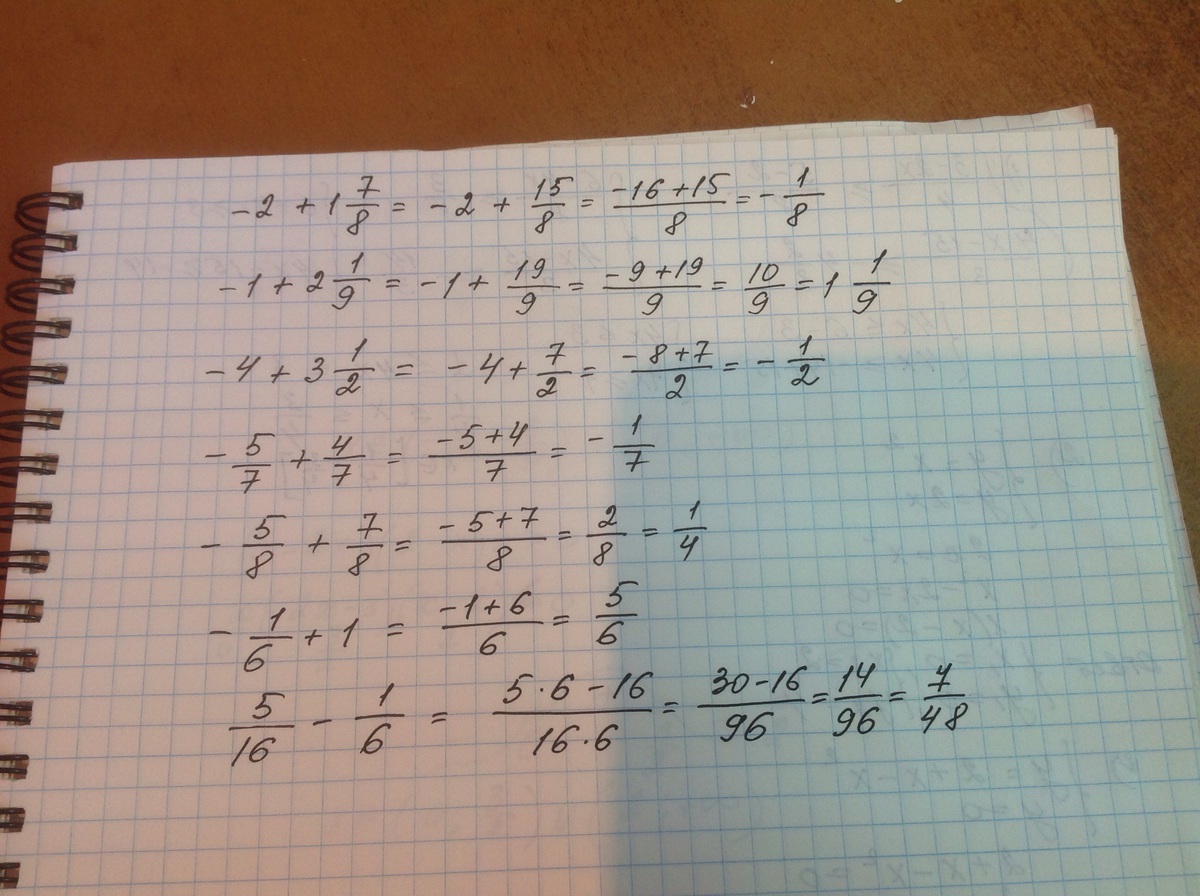 -2 + 1 7/8 = -2 + 15/8 = (-16+15)/8 = -1/8
-1 + 2 1/9 = -1 + 19/9 = (-9+19)/9 = 10/9 = 1 1/9
-4 + 3 1/2 = -4 + 7/2 = (-8+7)/2 = -1/2
-5/7 + 4/7 = (-5+4)/7 = -1/7
-5/8 + 7/8 = (-5+7)/8 = 2/8 = 1/4
-1/6 + 1 = (-1+6)/6 = 5/6
5/16 - 1/6 = (5·6-16)/(16·6) = (30-16)/96 = 14/96 = 7/48